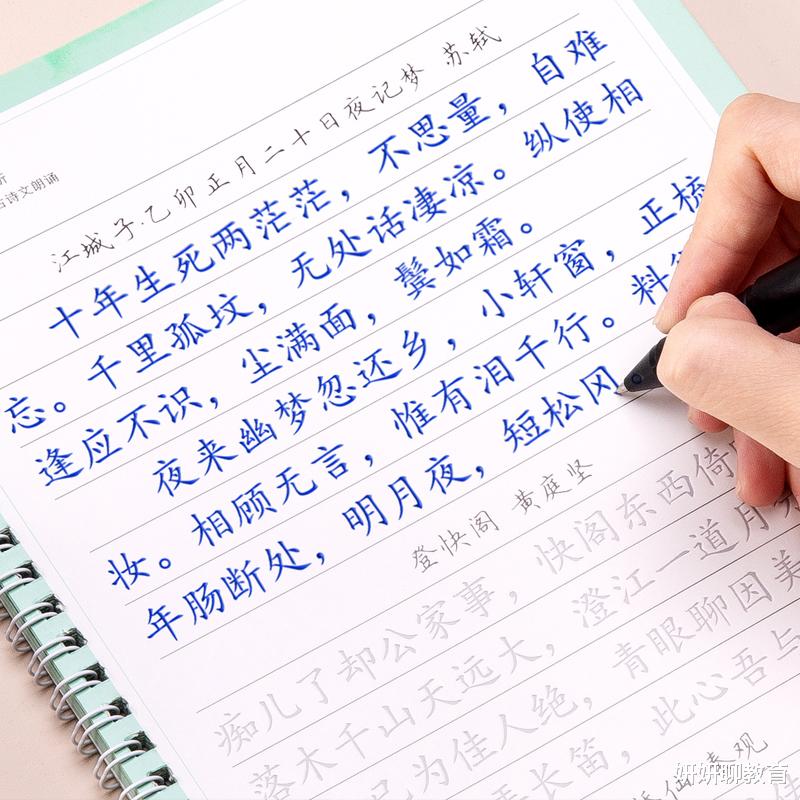 古诗文朗诵
江城子·乙卯正月二十日夜记梦 苏轼
十年生死两茫茫，不思量，自难
忘。千里孤坟，无处话凄凉。纵使相
逢应不识，尘满面，鬓如霜。
夜来幽梦忽还乡，小轩窗，正梳
妆。相顾无言，惟有泪千行。料
年肠断处，明月夜，短松冈
登快阁 黄庭坚
痴儿了却公家事，快阁东西倚
落木千山天远大，澄江一道月
已为佳人绝，青眼聊因美
长笛，此心吾与
妍妍聊教育